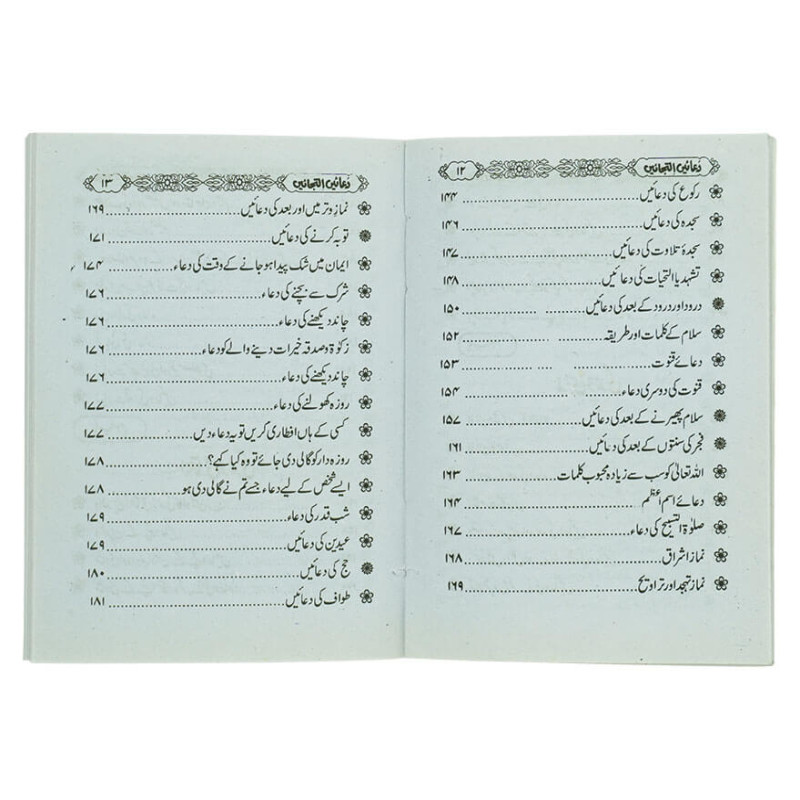 دعائیں التجائیں ۱۲
رکوع کی دعائیں ۱۴۴
سجدہ کی دعائیں ۱۴۶
سجدۂ تلاوت کی دعائیں ۱۴۷
تشہد یا التحیات کی دعائیں ۱۴۸
درود اور درود کے بعد کی دعائیں ۱۵۰
سلام کے کلمات اور طریقہ ۱۵۲
دعائے قنوت ۱۵۳
قنوت کی دوسری دعاء ۱۵۴
سلام پھیرنے کے بعد کی دعائیں ۱۵۷
فجر کی سنتوں کے بعد کی دعائیں ۱۶۱
اللہ تعالیٰ کو سب سے زیادہ محبوب کلمات ۱۶۳
دعائے اسم اعظم ۱۶۴
صلوٰۃ التسبیح کی دعاء ۱۶۷
نماز اشراق ۱۶۸
نماز تہجد اور تراویح ۱۶۹
دعائیں التجائیں ۱۳
نماز وتر میں اور بعد کی دعائیں ۱۶۹
توبہ کرنے کی دعائیں ۱۷۱
ایمان میں شک پیدا ہو جانے کے وقت کی دعاء ۱۷۴
شرک سے بچنے کی دعاء ۱۷۶
چاند دیکھنے کی دعاء ۱۷۶
زکوٰۃ و صدقہ خیرات دینے والے کو دعاء ۱۷۶
چاند دیکھنے کی دعاء ۱۷۶
روزہ کھولنے کی دعاء ۱۷۷
کسی کے ہاں افطاری کریں تو یہ دعاء دیں ۱۷۷
روزہ دار کو گالی دی جائے تو وہ کیا کہے؟ ۱۷۸
ایسے شخص کے لیے دعاء جسے تم نے گالی دی ہو ۱۷۸
شب قدر کی دعاء ۱۷۹
عیدین کی دعائیں ۱۷۹
حج کی دعائیں ۱۸۰
طواف کی دعائیں ۱۸۱